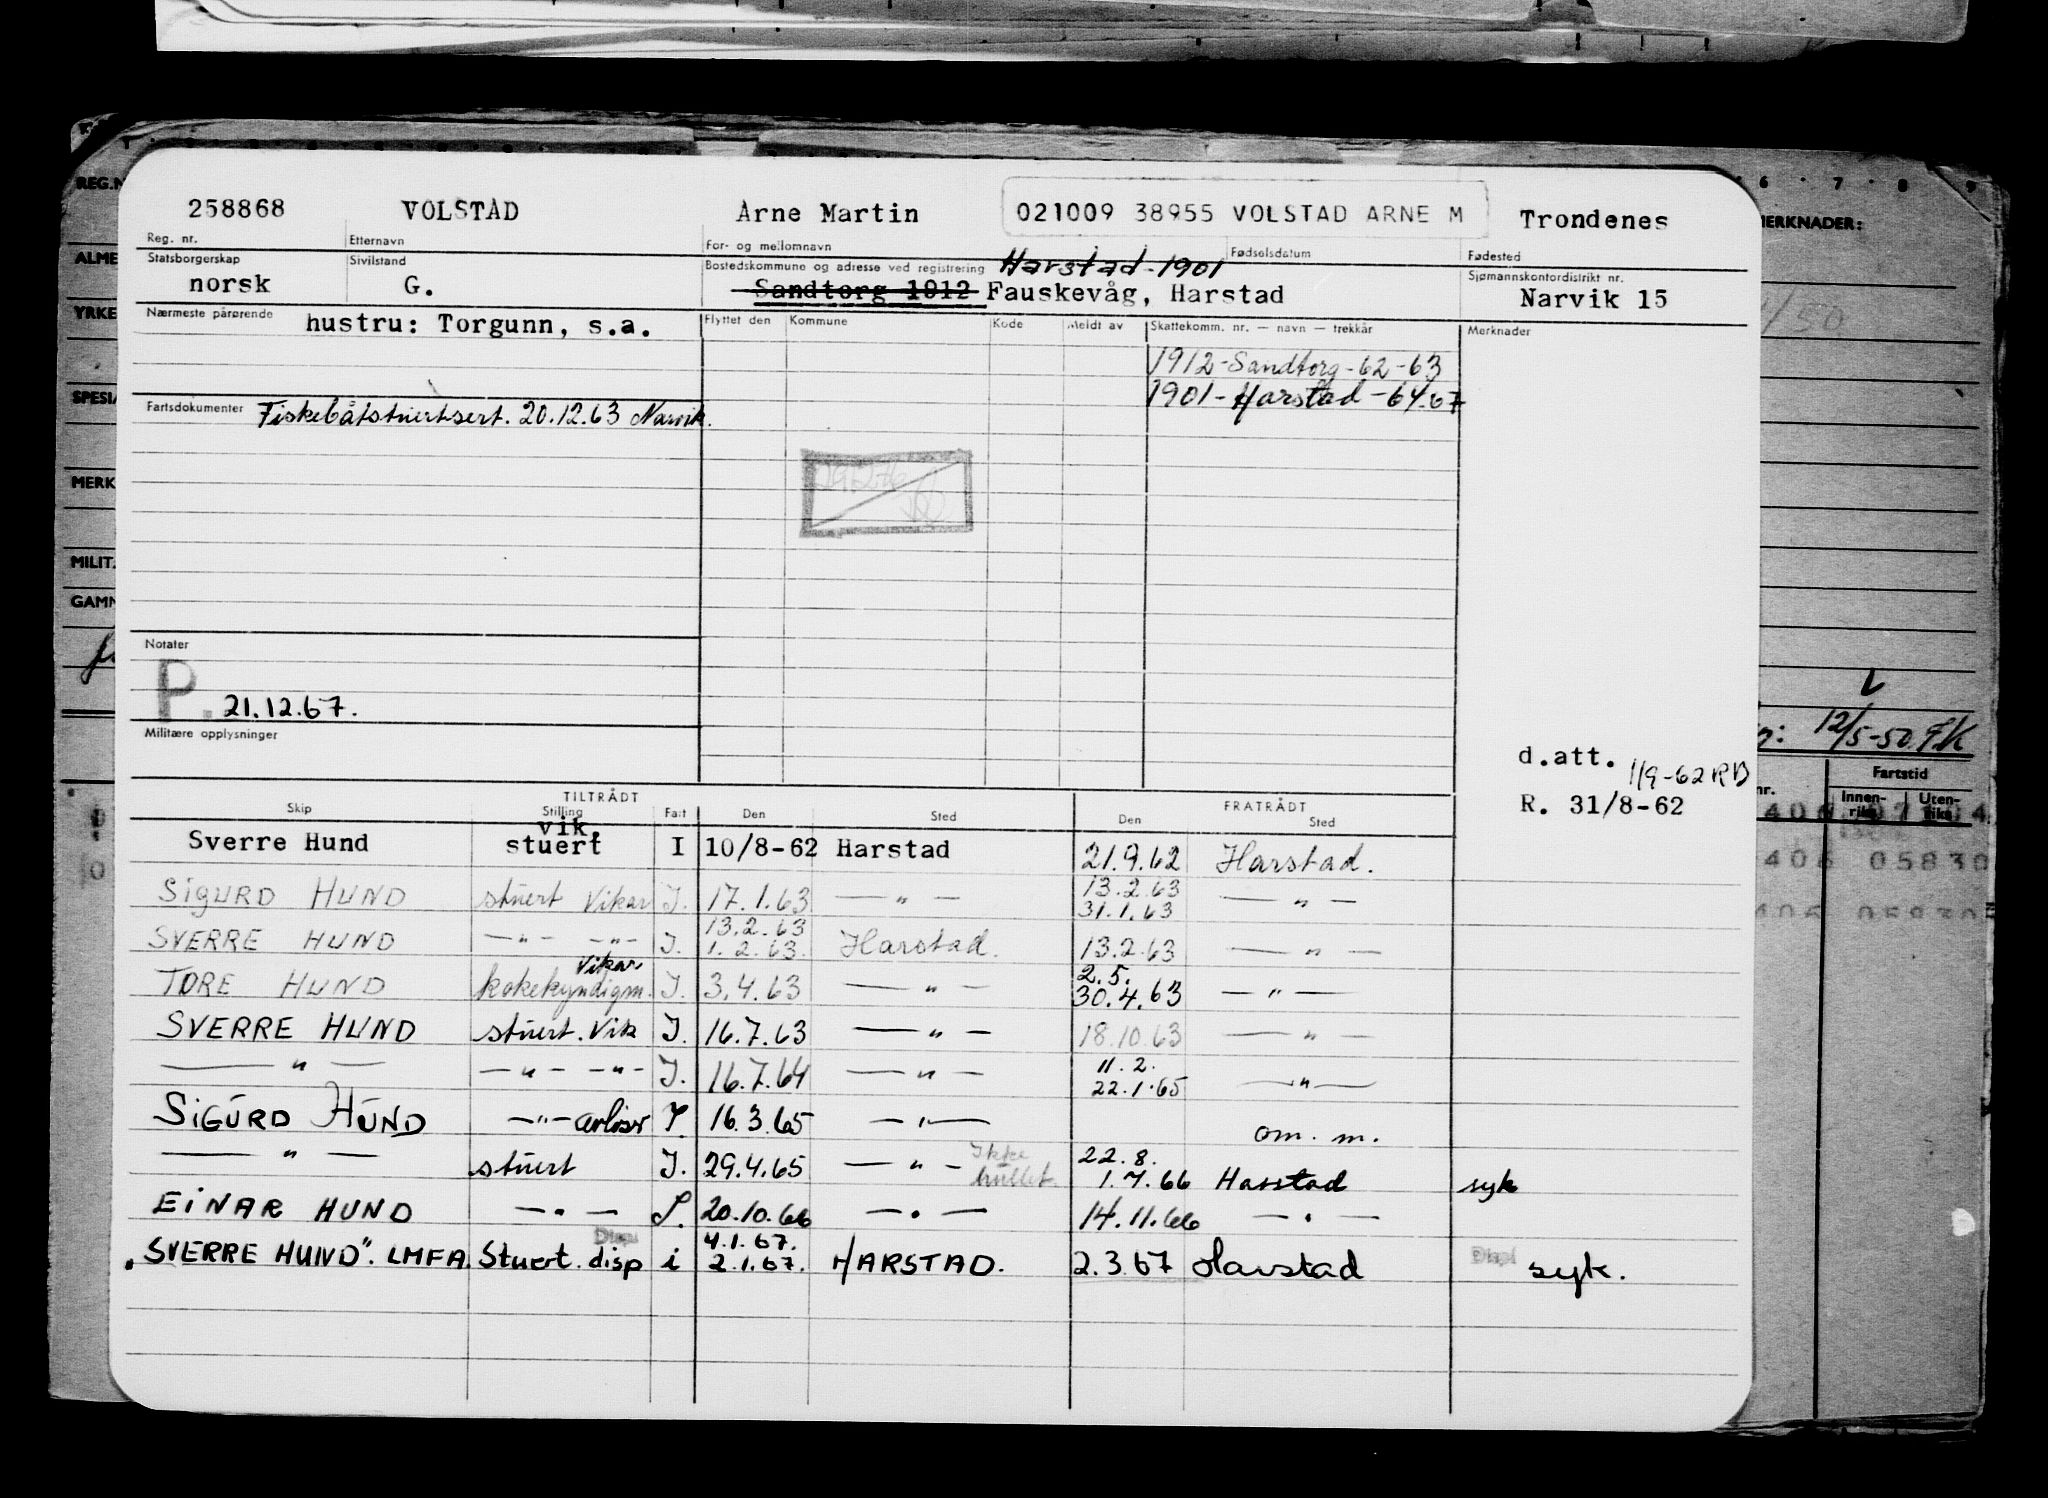 258868 VOLSTAD Arne Martin 021009 38955 VOLSTAD ARNE M Trondenes
Reg. nr. Etternavn For- og mellomnavn Fødselsdatum Fødested
Statsborgerskap Sivilstand Bostedskommune og adresse ved registrering Harstad-1901 Sjømannskontordistrikt nr.
norsk G. Sandtorg 1912 Fauskevåg, Harstad Narvik 15
Nærmeste pårørende hustru: Torgunn, s.a. Flyttet den Kommune Kode Meldt av Skattekomm. nr. — navn — trekkår Merknader
1912-Sandtorg-62-63
1901-Harstad-64-67
Fartsdokumenter Fiskebåtstuertsert. 20.12.63 Narvik.
Notater
P. 21.12.67.
Militære opplysninger
d.att. 1/9-62 RB
R. 31/8-62
TILTRÅDT FRATRÅDT
Skip Stilling Fart Den Sted Den Sted
Sverre Hund vik. stuert I 10/8-62 Harstad 21.9.62 Harstad.
SIGURD HUND stuert Vikar I. 17.1.63 — " — 13.2.63 31.1.63 — " —
SVERRE HUND — " — — " — I. 13.2.63 1.2.63. Harstad. 13.2.63 — " —
TORE HUND kokekyndigm. Vikar I. 3.4.63 — " — 2.5. 30.4.63 — " —
SVERRE HUND stuert. Vik I. 16.7.63 — " — 18.10.63 — " —
— " — — " — — " — I. 16.7.64 — " — 11.2. 22.1.65 — " —
SIGURD HUND — " — avløser I. 16.3.65 — " — om. m.
— " — stuert I. 29.4.65 — " — Ikke 22.8. 1.7.66 Harstad syk
EINAR HUND — " — I. 20.10.66 — " — 14.11.66 — " —
"SVERRE HUND". LMFA. Stuert. disp Disp i 4.1.67. 2.1.67. HARSTAD. 2.3.67 Harstad Disp syk.
REG.N
ALME
YRKE
SPESI
MERK
MILIT.
GAMN
MERKNADER:
/50
12/5-50
Fartstid
Innen-riks Uten-riks
406 05830